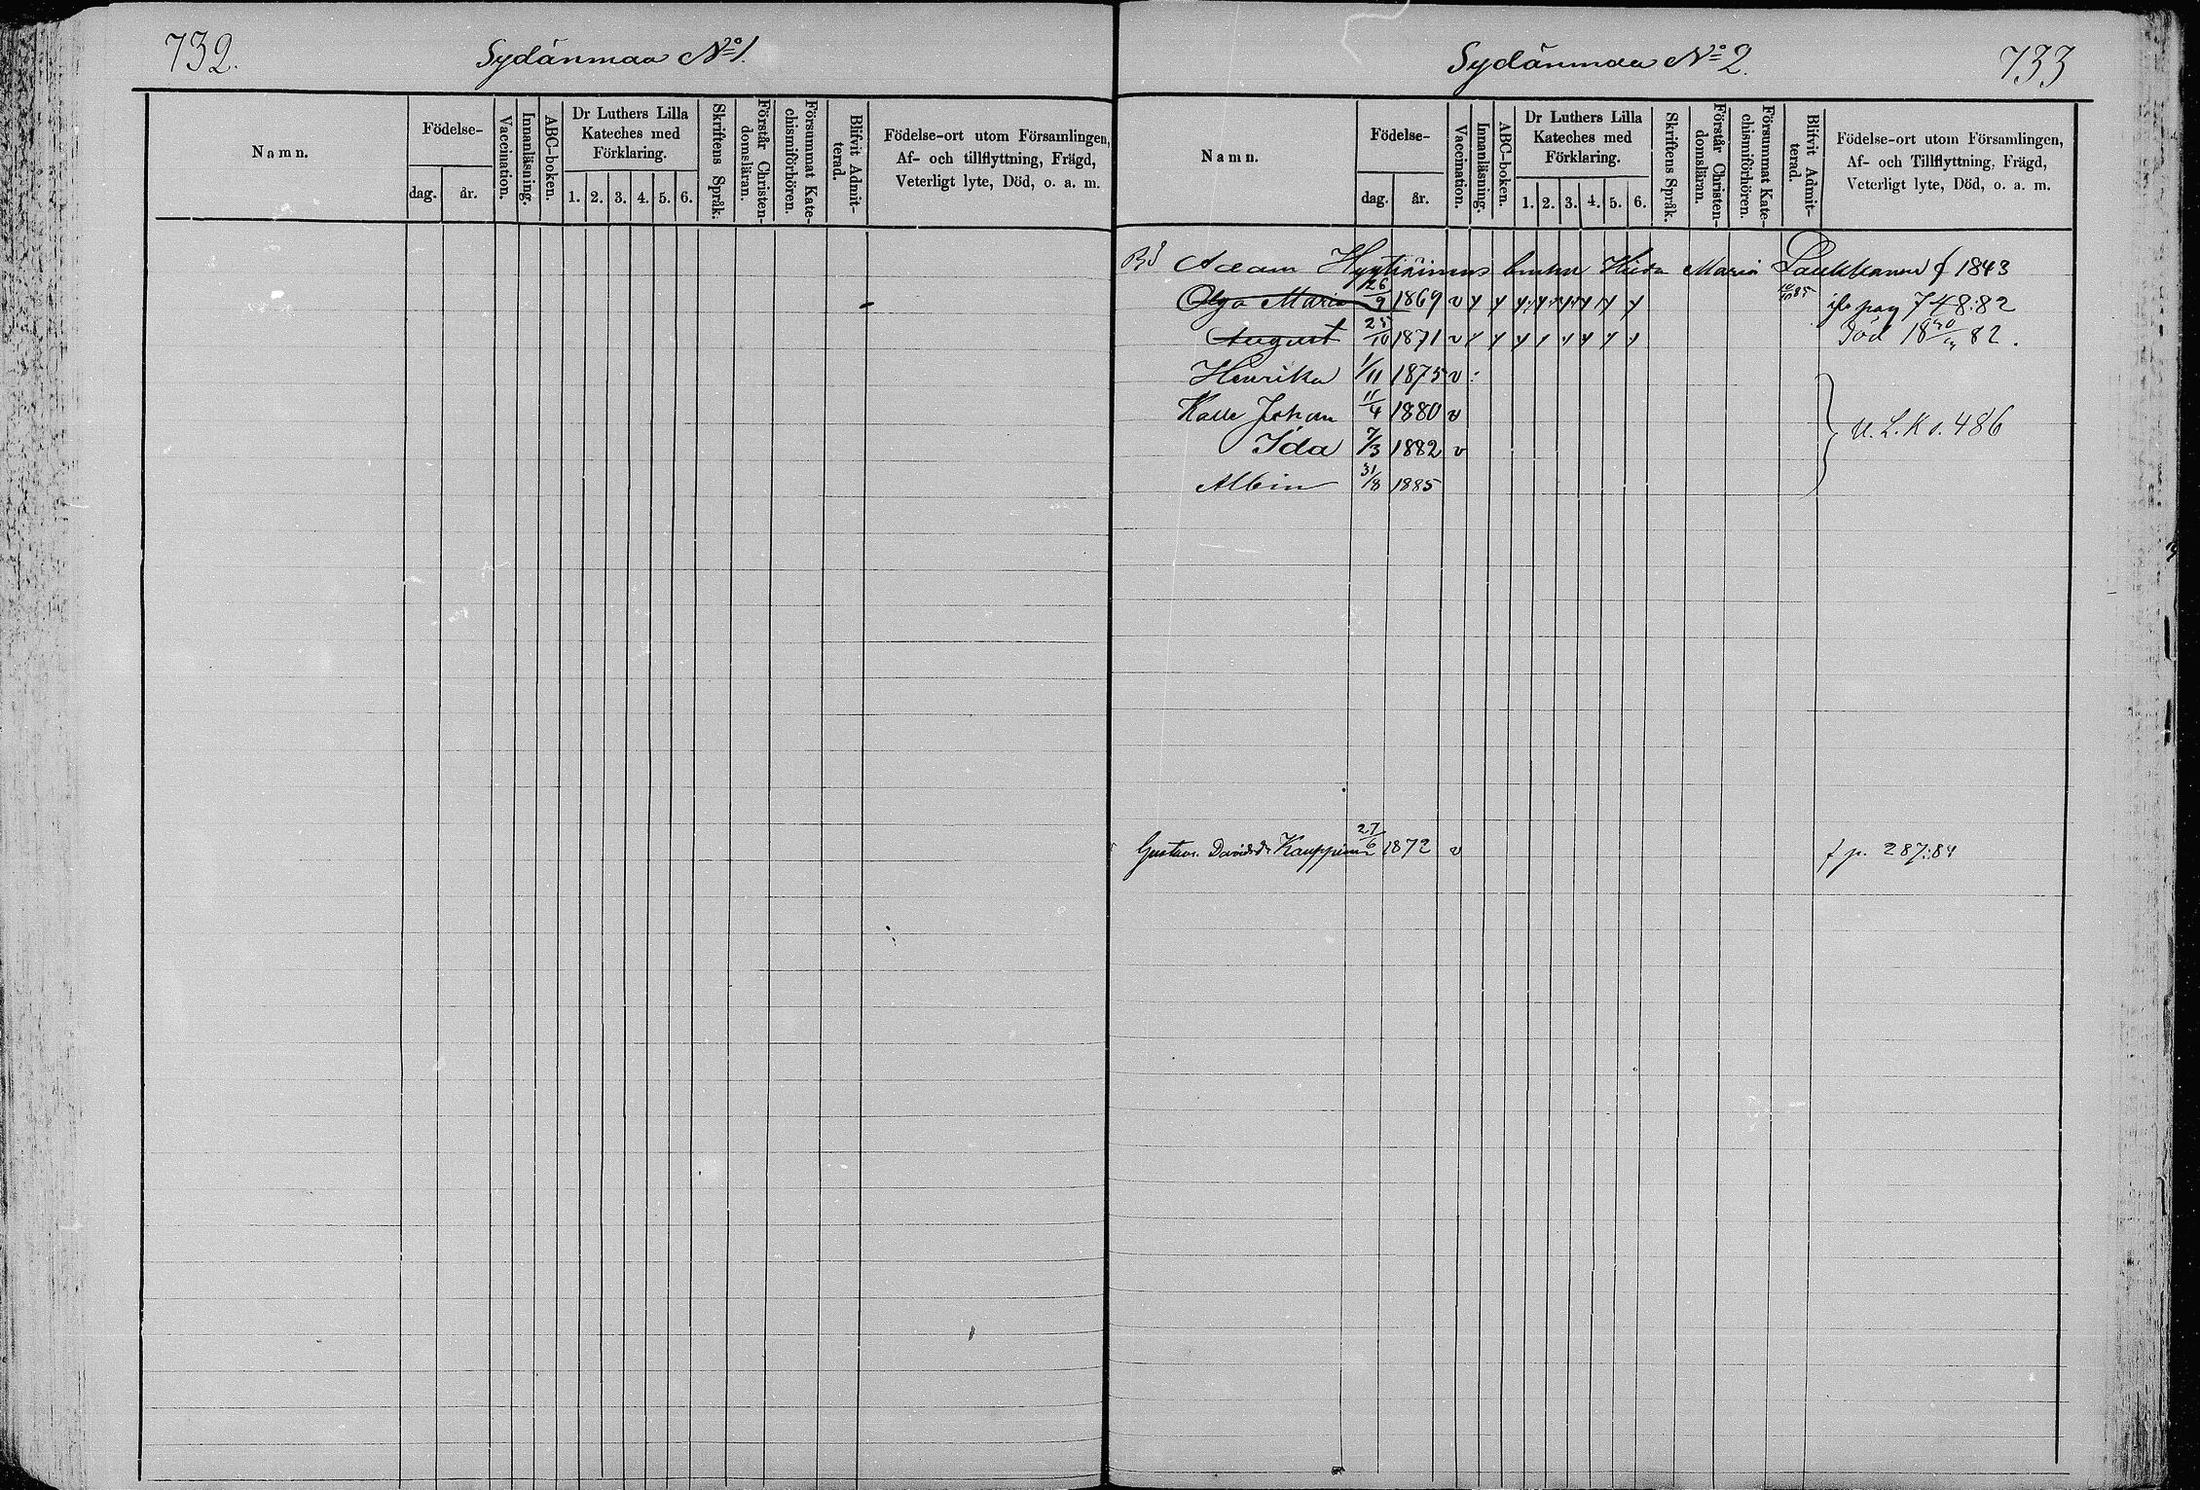 732.
Sydänmaa No 1.
Namn.
Födelse-
dag.
år.
Vaccination.
Innanläsning.
ABC-boken.
Dr Luthers Lilla
Kateches med
Förklaring.
1. 2. 3. 4. 5. 6.
Skriftens Språk.
Förstår Christen-
domsläran.
Försummat Kate-
chismiförhören.
Blifvit Admit-
terad.
Födelse-ort utom Församlingen,
Af- och tillflyttning, Frägd,
Veterligt lyte, Död, o. a. m.
Sydänmaa No 2.
733
Namn.
Födelse-
dag.
år.
Vaccination.
Innanläsning.
ABC-boken.
Dr Luthers Lilla
Kateches med
Förklaring.
1. 2. 3. 4. 5. 6.
Skriftens Språk.
Förstår Christen-
domsläran.
Försummat Kate-
chismiförhören.
Blifvit Admit-
terad.
Födelse-ort utom Församlingen,
Af- och Tillflyttning, Frägd,
Veterligt lyte, Död, o. a. m.
Adam Hyytiäinens Maria Laukkanen f 1843
Olga Maria 26/9 1869 v pag 748:82
August 25/10 1871 v Död 18 82.
Henrika 1/11 1875 v
Kalle Johan 11/4 1880 v
Ida 7/3 1882 v
U. L. K s. 486
Albin 31/8 1885
Gustav Davidss Kauppinen 27/6 1872 v f p. 287:84